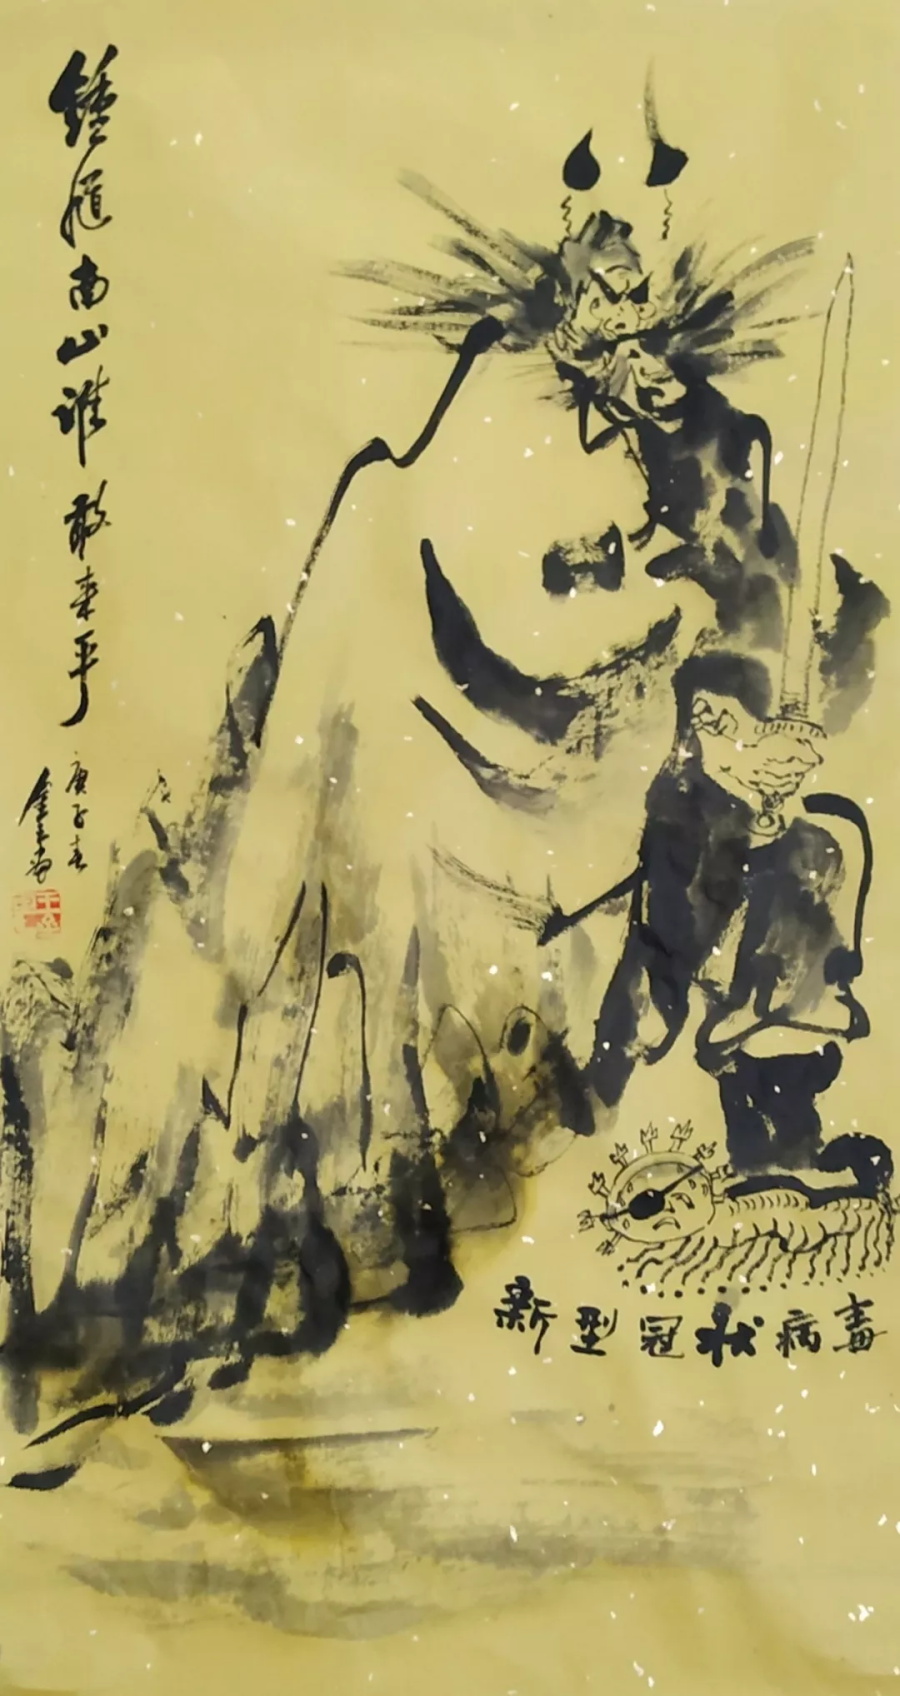 鍾馗南山谁敢来乎
庚子春
新型冠状病毒